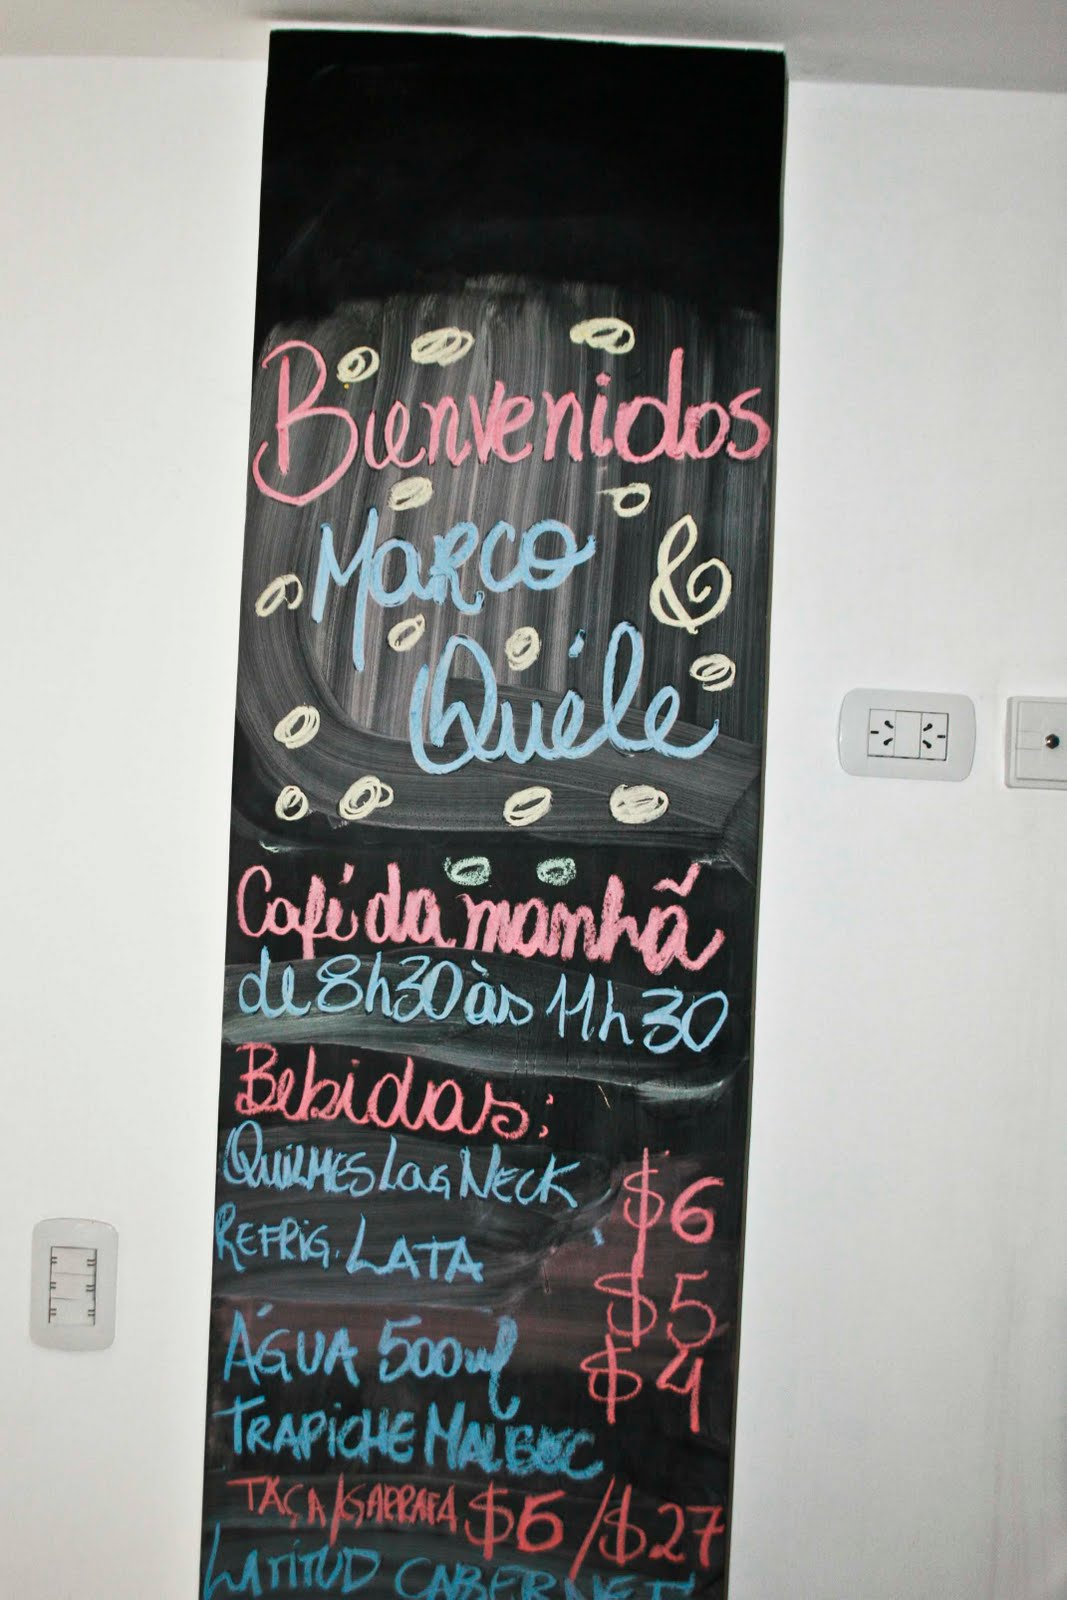 Bienvenidos
Marco &
Quéle
Café da manhã
de 8h30 às 11h30
Bebidas:
QUILMES LOG NECK $6
REFRIG. LATA $5
ÁGUA 500ml $4
TRAPICHE MALBEC
TAÇA/GARRAFA $6/$27
LATITUD CABERNET